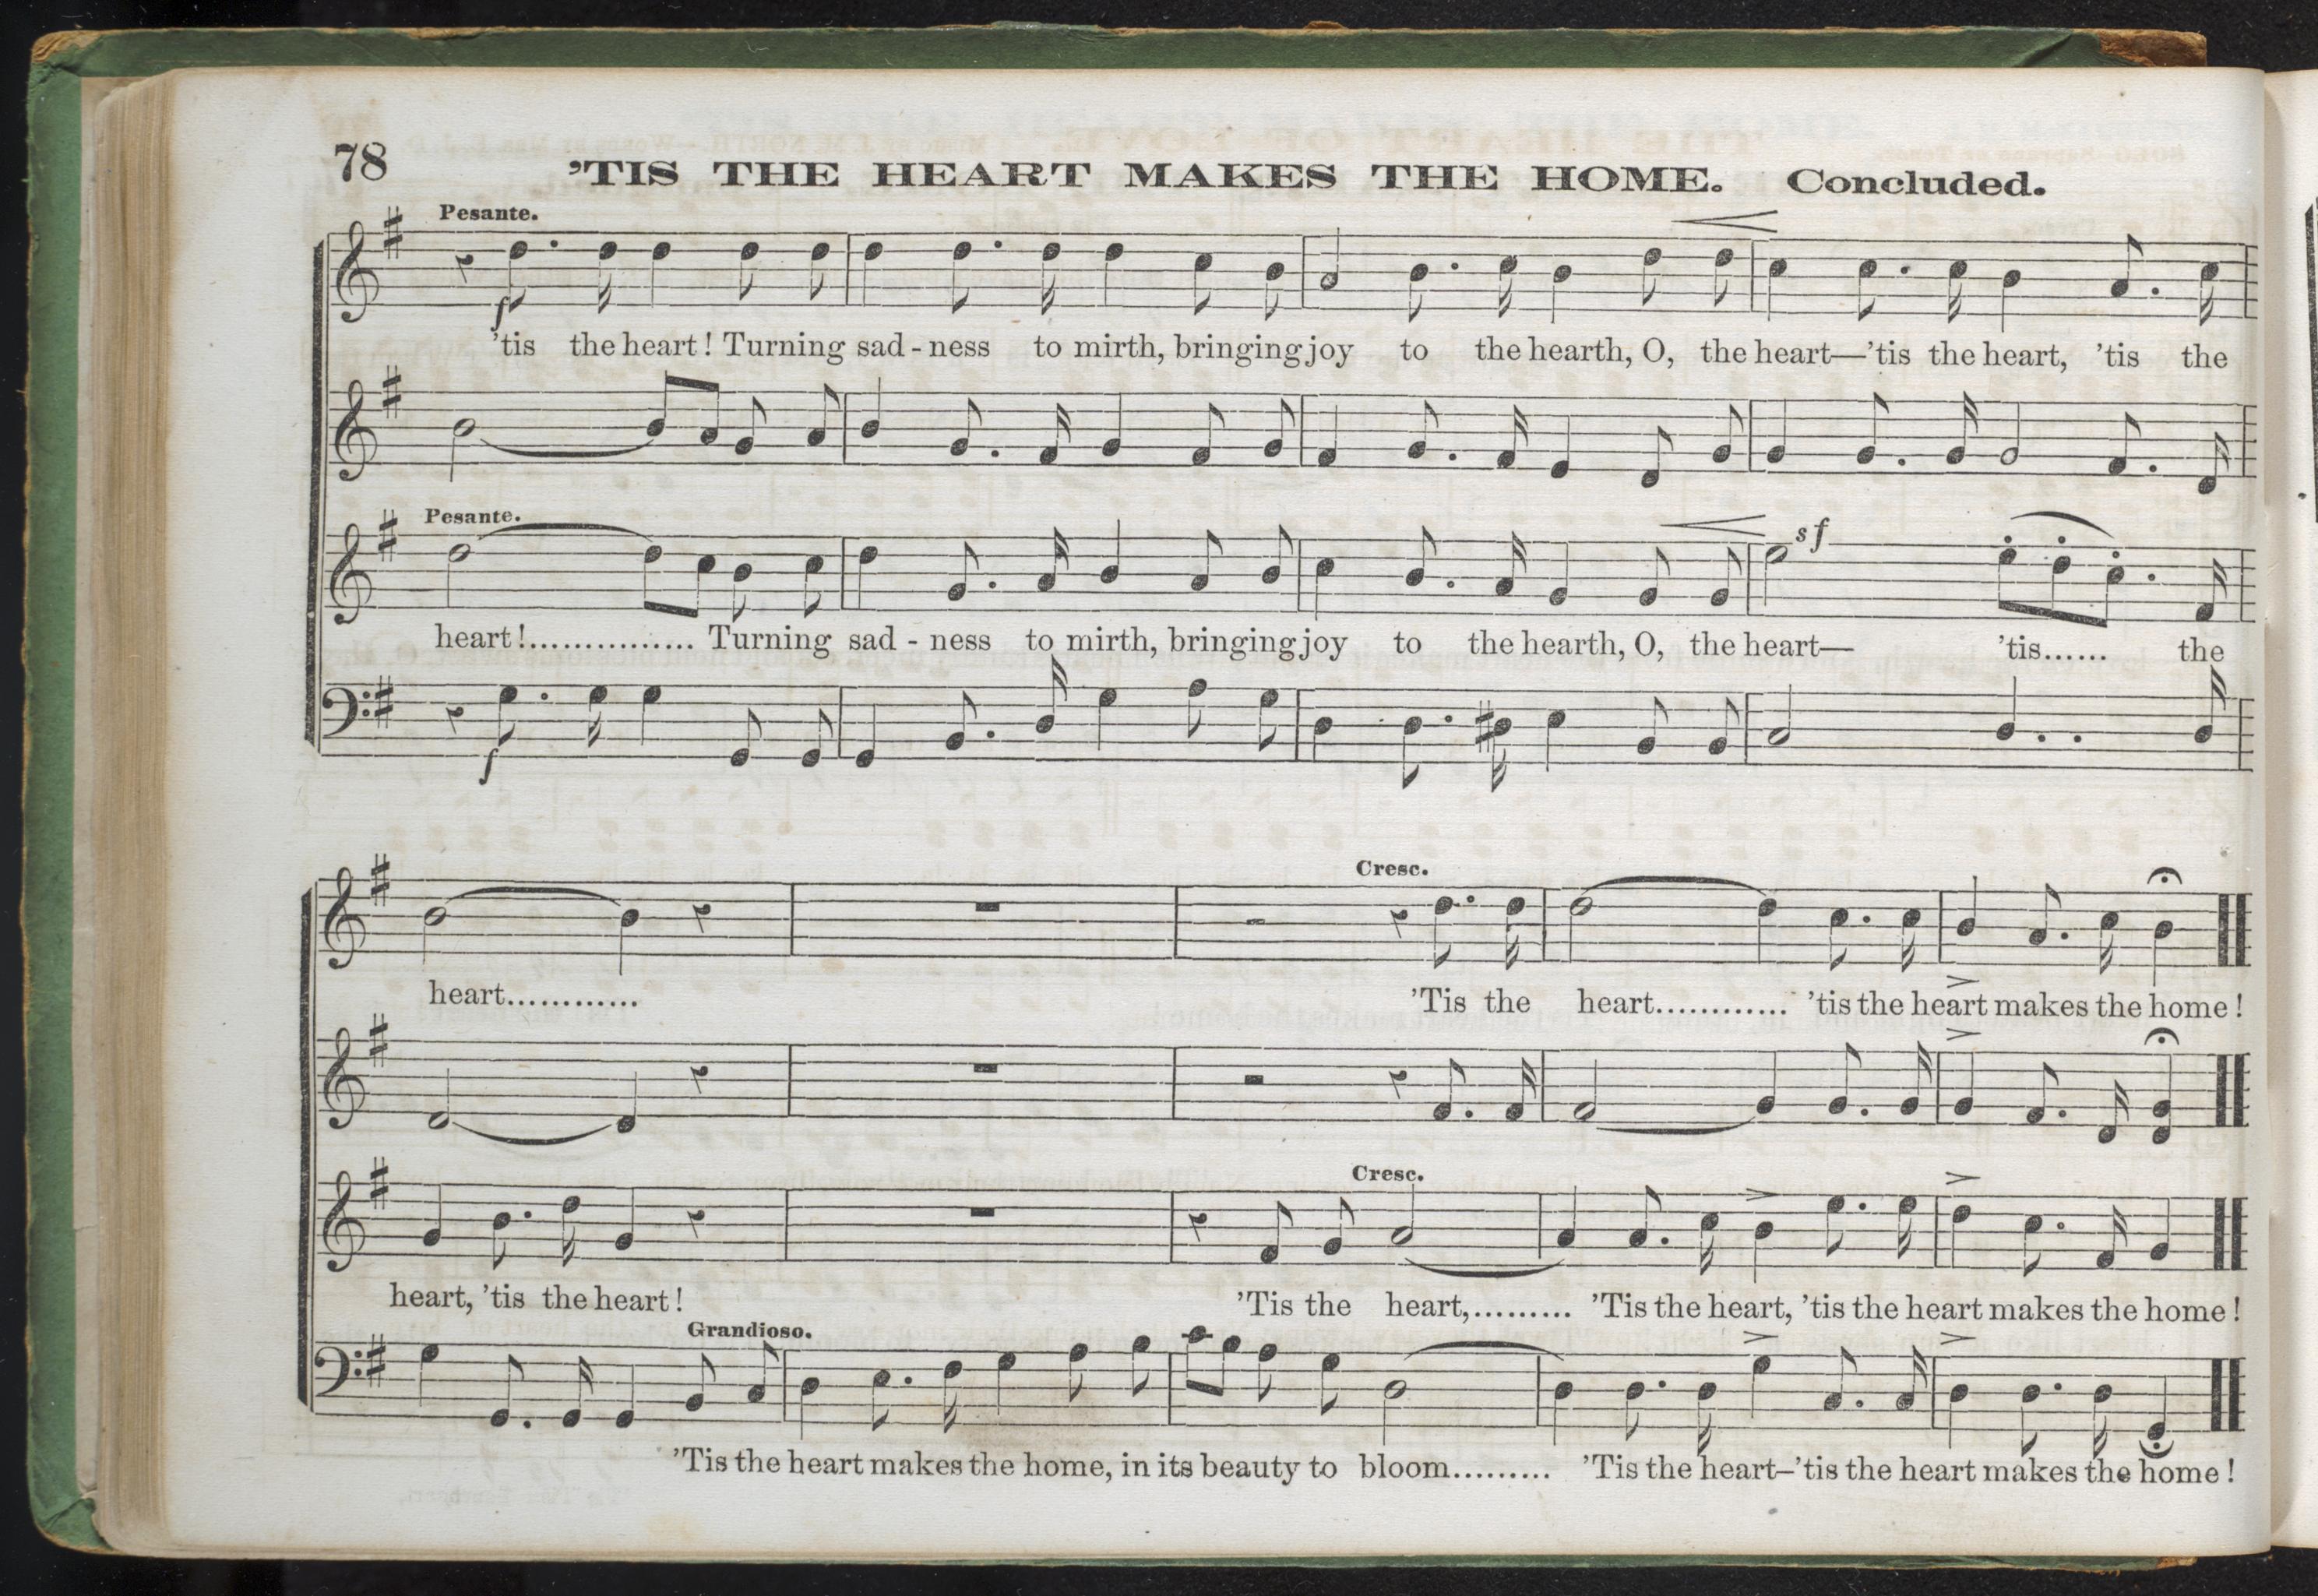 78
’TIS THE HEART MAKES THE HOME. Concluded.
Pesante.
f
’tis the heart! Turning sad-ness to mirth, bringing joy to the hearth, O, the heart—’tis the heart, ’tis the
Pesante.
sf
heart!............... Turning sad-ness to mirth, bringing joy to the hearth, O, the heart— ’tis...... the
f
Cresc.
heart............ ’Tis the heart............ ’tis the heart makes the home!
Cresc.
heart, ’tis the heart! ’Tis the heart,......... ’Tis the heart, ’tis the heart makes the home!
Grandioso.
’Tis the heart makes the home, in its beauty to bloom......... ’Tis the heart–’tis the heart makes the home!